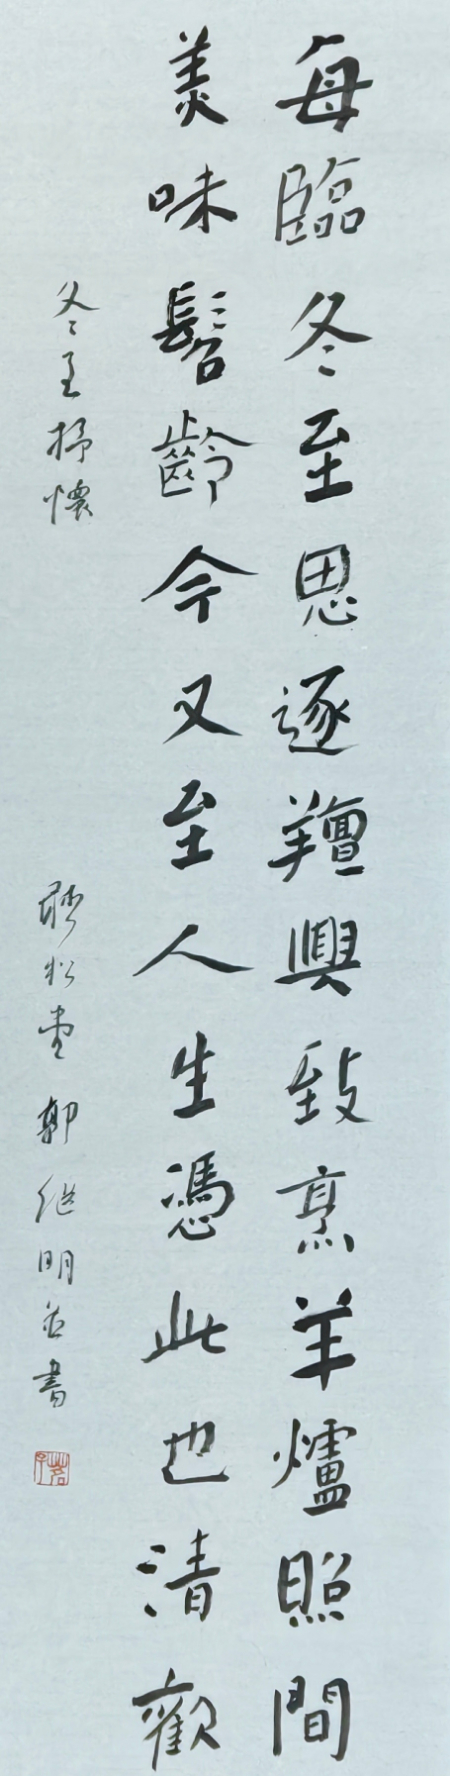 每臨冬至思逐羶興致烹羊爐照間
美味髫齡今又至人生憑此也清歡
冬至抒懷
聽松堂郭继明并書